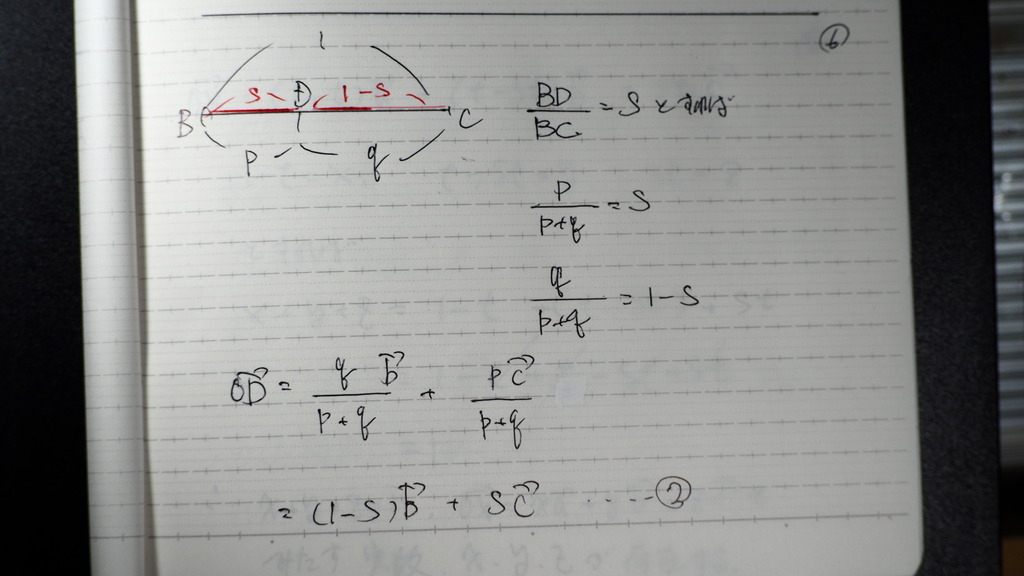 ⑥
1
S D 1-S
B C
p q
BD/BC = S とすれば
p/(p+q) = S
q/(p+q) = 1-S
OD→ = q b→/(p+q) + p c→/(p+q)
= (1-S) b→ + S c→ ・・・・・②